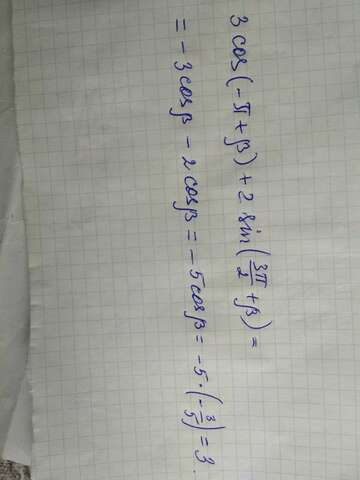 3 cos(-π+β)+2 sin(3π/2+β)=
= -3cosβ - 2cosβ = -5cosβ = -5·(-3/5)=3.